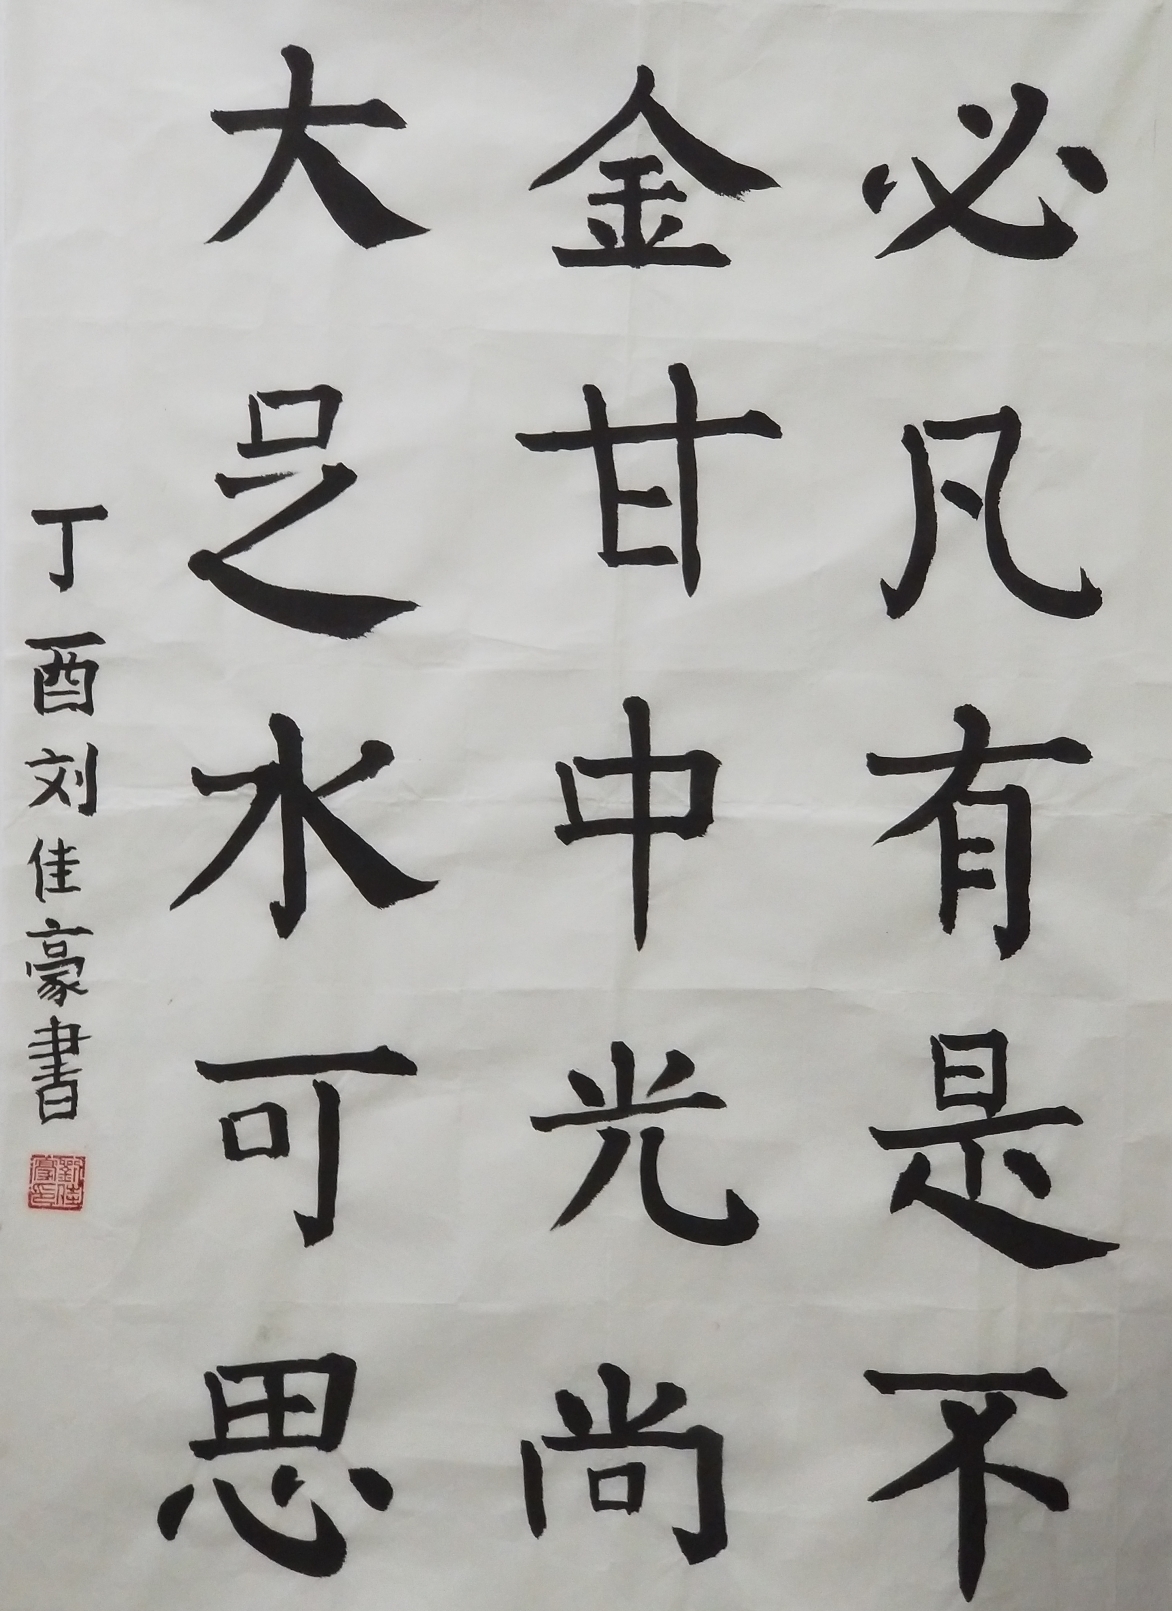 必凡有是不
金甘中光尚
大足水可思
丁酉刘佳豪書
劉佳豪印